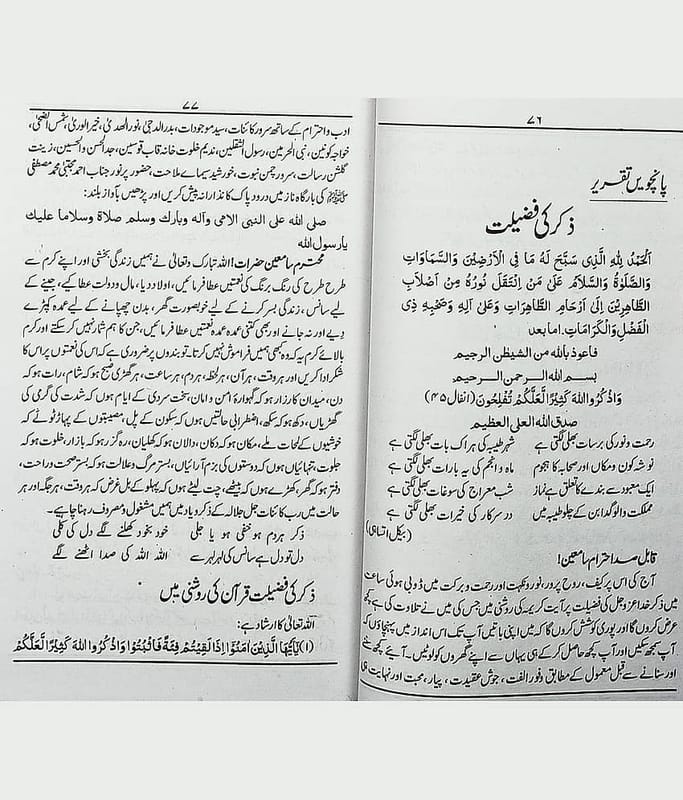 ۷۶
پانچویں تقریر
ذکر کی فضیلت
اَلْحَمْدُ لِلّٰهِ الَّذِی سَبَّحَ لَهُ مَا فِی الْاَرْضِیْنَ وَالسَّمَاوَاتِ
وَالصَّلٰوةُ وَالسَّلَامُ عَلٰی مَنِ انْتَقَلَ نُوْرُهُ مِنْ اَصْلَابِ
الطَّاهِرِیْنَ اِلٰی اَرْحَامِ الطَّاهِرَاتِ وَعَلٰی اٰلِهِ وَصَحْبِهِ ذِی
الْفَضْلِ وَالْکَرَامَاتِ. اما بعد
فاعوذ بالله من الشیطن الرجیم
بسم الله الرحمن الرحیم
وَاذْکُرُوا اللهَ کَثِیْرًا لَّعَلَّکُمْ تُفْلِحُوْنَ (انفال ۴۵)
صدق الله العلی العظیم
رحمت و نور کی برسات بھلی لگتی ہے شہر طیبہ کی ہر اک بات بھلی لگتی ہے
نوشہ کون و مکاں اور صحابہ کا ہجوم ماہ و انجم کی یہ بارات بھلی لگتی ہے
ایک معبود سے بندے کا تعلق ہے نماز شب معراج کی سوغات بھلی لگتی ہے
مملکت والو گدا بن کے چلو طیبہ میں در سرکار کی خیرات بھلی لگتی ہے
(بیکل اتساہی)
قابل صد احترام سامعین!
آج کی اس پر کیف، روح پرور، نور و نکہت اور رحمت و برکت میں ڈوبی ہوئی ساعت
میں ذکر خدا عز و جل کی فضیلت پر آیت کریمہ کی روشنی میں جس کی میں نے تلاوت کی ہے کچھ
عرض کروں گا اور پوری کوشش کروں گا کہ میں اپنی باتیں آپ تک اس انداز میں پہنچاؤں کہ
آپ سمجھ سکیں اور آپ کچھ حاصل کر کے ہی یہاں سے اپنے گھروں کو لوٹیں۔ آیئے کچھ سننے
اور سنانے سے قبل معمول کے مطابق وفور الفت، جوش عقیدت، پیار، محبت اور نہایت ہی
۷۷
ادب و احترام کے ساتھ سرور کائنات، سید موجودات، بدر الدجیٰ، نور الھدیٰ، خیر الوریٰ، شمس الضحیٰ،
خواجہ کونین، نبی الحرمین، رسول الثقلین، ندیم خلوت خانہ قاب قوسین، جد الحسن والحسین، زینت
گلشن رسالت، سرور چمن نبوت، خورشید سیمائے ملاحت، حضور پر نور جناب احمد مجتبیٰ محمد مصطفیٰ
ﷺ کی بارگاہ ناز میں درود پاک کا نذرانہ پیش کریں اور پڑھیں بآواز بلند:
صلی الله علی النبی الامی وآله وبارک وسلم صلاة وسلاما علیک
یا رسول الله
محترم سامعین حضرات! اللہ تبارک و تعالیٰ نے ہمیں زندگی بخشی اور اپنے کرم سے
طرح طرح کی رنگ برنگ کی نعمتیں عطا فرمائیں، اولاد دیا، مال و دولت عطا کیے، جینے کے
لیے سانس، زندگی بسر کرنے کے لیے خوبصورت گھر، بدن چھپانے کے لیے عمدہ کپڑے
دیے اور نہ جانے اور بھی کتنی عمدہ عمدہ نعمتیں عطا فرمائیں، جن کا ہم شمار نہیں کر سکتے اور کرم
بالائے کرم یہ کہ وہ کبھی ہمیں فراموش نہیں کرتا۔ تو بندوں پر ضروری ہے کہ اس کی نعمتوں پر اس کا
شکر ادا کریں اور ہر وقت، ہر آن، ہر لحظہ، ہر دم، ہر ساعت، ہر گھڑی صبح ہو کہ شام، رات ہو کہ
دن، میدان کارزار ہو کہ گہوارۂ امن و امان، سخت سردی کے ایام ہوں کہ شدت کی گرمی کی
گھڑیاں، دکھ ہو کہ سکھ، اضطرابی حالتیں ہوں کہ سکون کے پل، مصیبتوں کے پہاڑ ٹوٹے کہ
خوشیوں کے لمحات ملے، مکان ہو کہ دکان، دالان ہو کہ کھلیان، رہ گزر ہو کہ بازار، خلوت ہو کہ
جلوت، تنہائیاں ہوں کہ دوستوں کی بزم آرائیاں، بستر مرگ و علالت ہو کہ بستر صحت و راحت،
دفتر ہو کہ گھر، کھڑے ہوں کہ بیٹھے، چت لیٹے ہوں کہ پہلو کے بل غرض کہ ہر وقت، ہر جگہ اور ہر
حالت میں رب کائنات جل جلالہ کے ذکر و یاد میں ہمیں مشغول و مصروف رہنا چاہیے۔
ذکر ہر دم ہو خفی ہو یا جلی خود بخود کھلنے لگے دل کی کلی
دل تو دل ہے سانس کی لہر لہر سے اللہ اللہ کی صدا اٹھنے لگے
ذکر کی فضیلت قرآن کی روشنی میں
اللہ تعالیٰ کا ارشاد ہے:
(۱) یٰۤاَیُّهَا الَّذِیْنَ اٰمَنُوْۤا اِذَا لَقِیْتُمْ فِئَةً فَاثْبُتُوْا وَاذْکُرُوا اللهَ کَثِیْرًا لَّعَلَّکُمْ